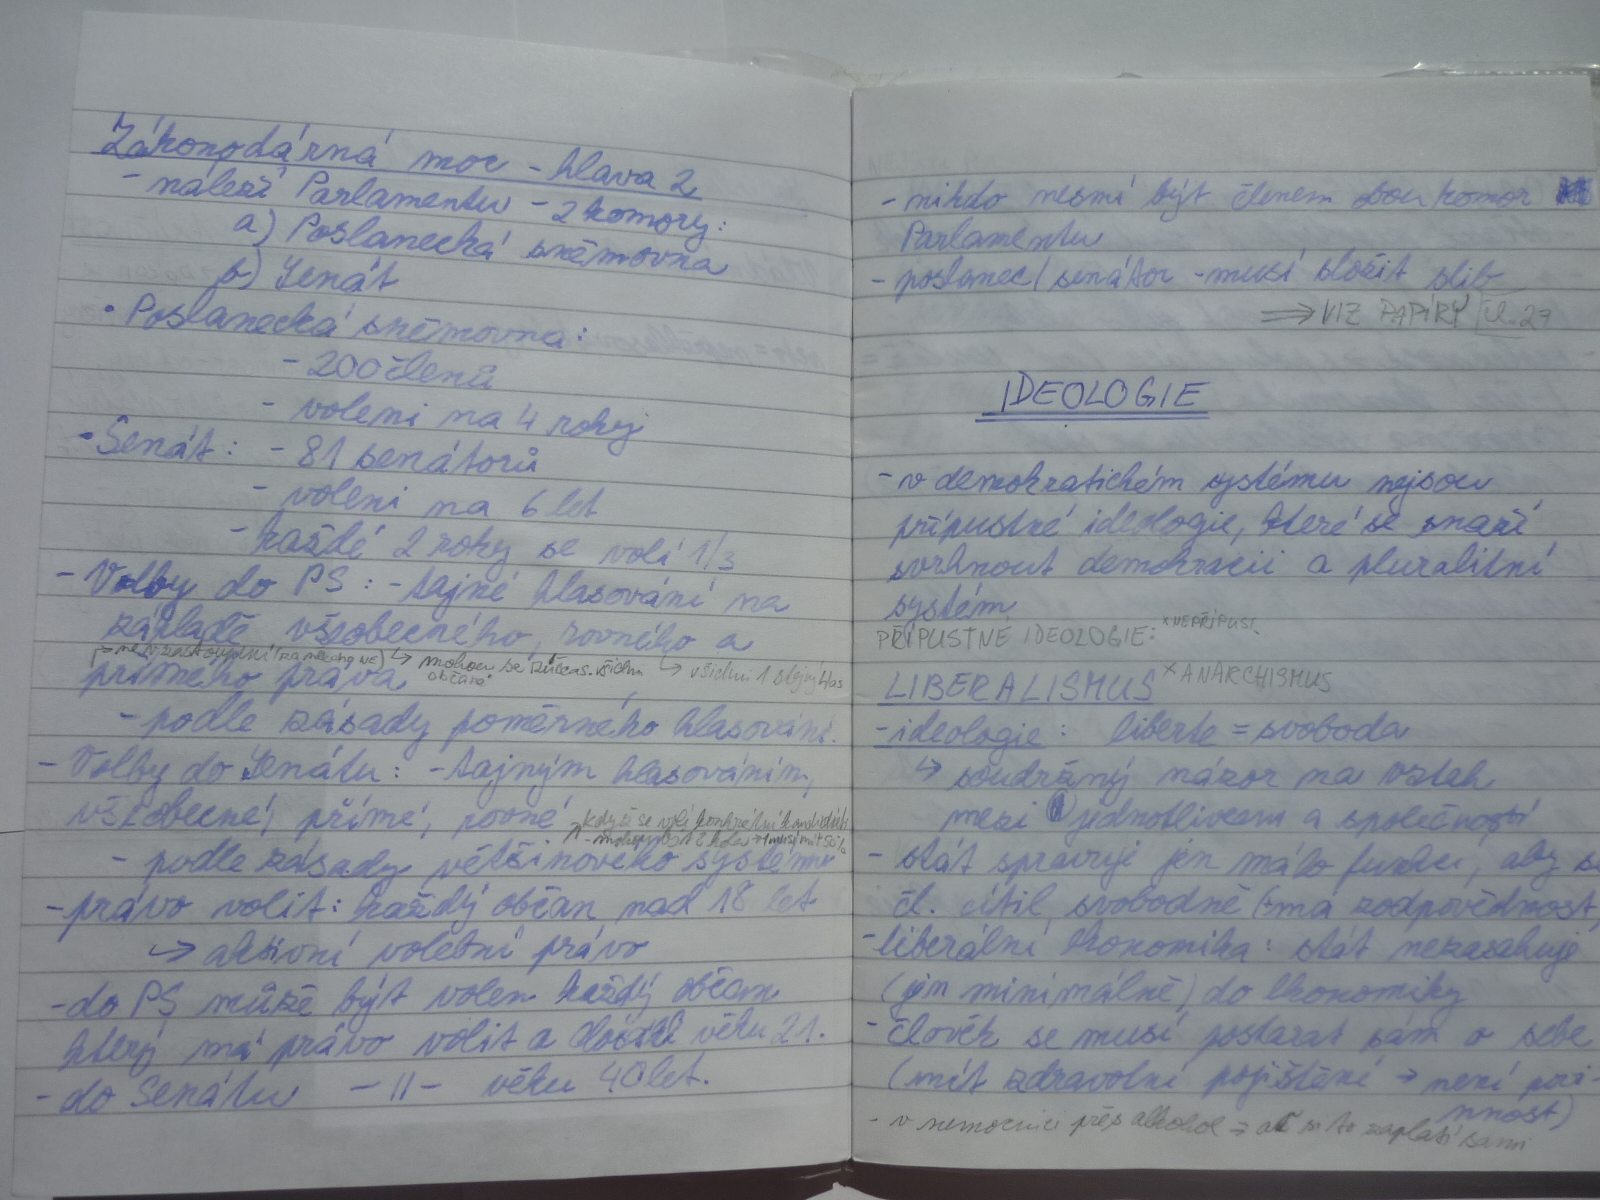 Zákonodárná moc - hlava 2
- náleží Parlamentu - 2 komory:
a) Poslanecká sněmovna
b) Senát
• Poslanecká sněmovna:
- 200 členů
- voleni na 4 roky
• Senát: - 81 senátorů
- voleni na 6 let
- každé 2 roky se volí 1/3
- Volby do PS: - tajné hlasování na
základě všeobecného, rovného a
mohou se zúčas. všichni občané
↳ všichni 1 stejný hlas
přímého práva
- podle zásady poměrného hlasování.
- Volby do Senátu: - tajným hlasováním,
všeobecné, přímé, rovné
když se volí konkrétní kandidáti
- podle zásady většinového systému
- právo volit: každý občan nad 18 let
↳ aktivní volební právo
- do PS může být volen každý občan
který má právo volit a dosáhl věku 21.
- do Senátu -II- věku 40 let.
- nikdo nesmí být členem obou komor
Parlamentu
- poslanec/senátor - musí složit slib
⇒ VIZ PAPÍRY čl. 27
IDEOLOGIE
- v demokratickém systému nejsou
přípustné ideologie, které se snaží
svrhnout demokracii a pluralitní
systém
PŘÍPUSTNÉ IDEOLOGIE: × NEPŘÍPUS.
LIBERALISMUS × ANARCHISMUS
- ideologie: liberte = svoboda
↳ soudržný názor na vztah
mezi jednotlivcem a společností
- stát spravuje jen málo funkcí, aby se
čl. cítil svobodně (+má zodpovědnost)
- liberální ekonomika: stát nezasahuje
(jen minimálně) do ekonomiky
- člověk se musí postarat sám o sebe
(mít zdravotní pojištění → není povi-
nnost)
- v nemocnici přes alkohol ⇒ ať si to zaplatí sami